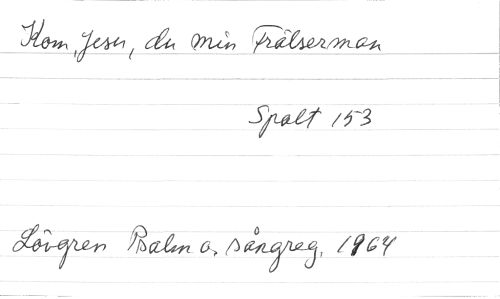 Kom, Jesu, du min Frälserman
Spalt 153
Lövgren Psalm o. sångreg. 1964